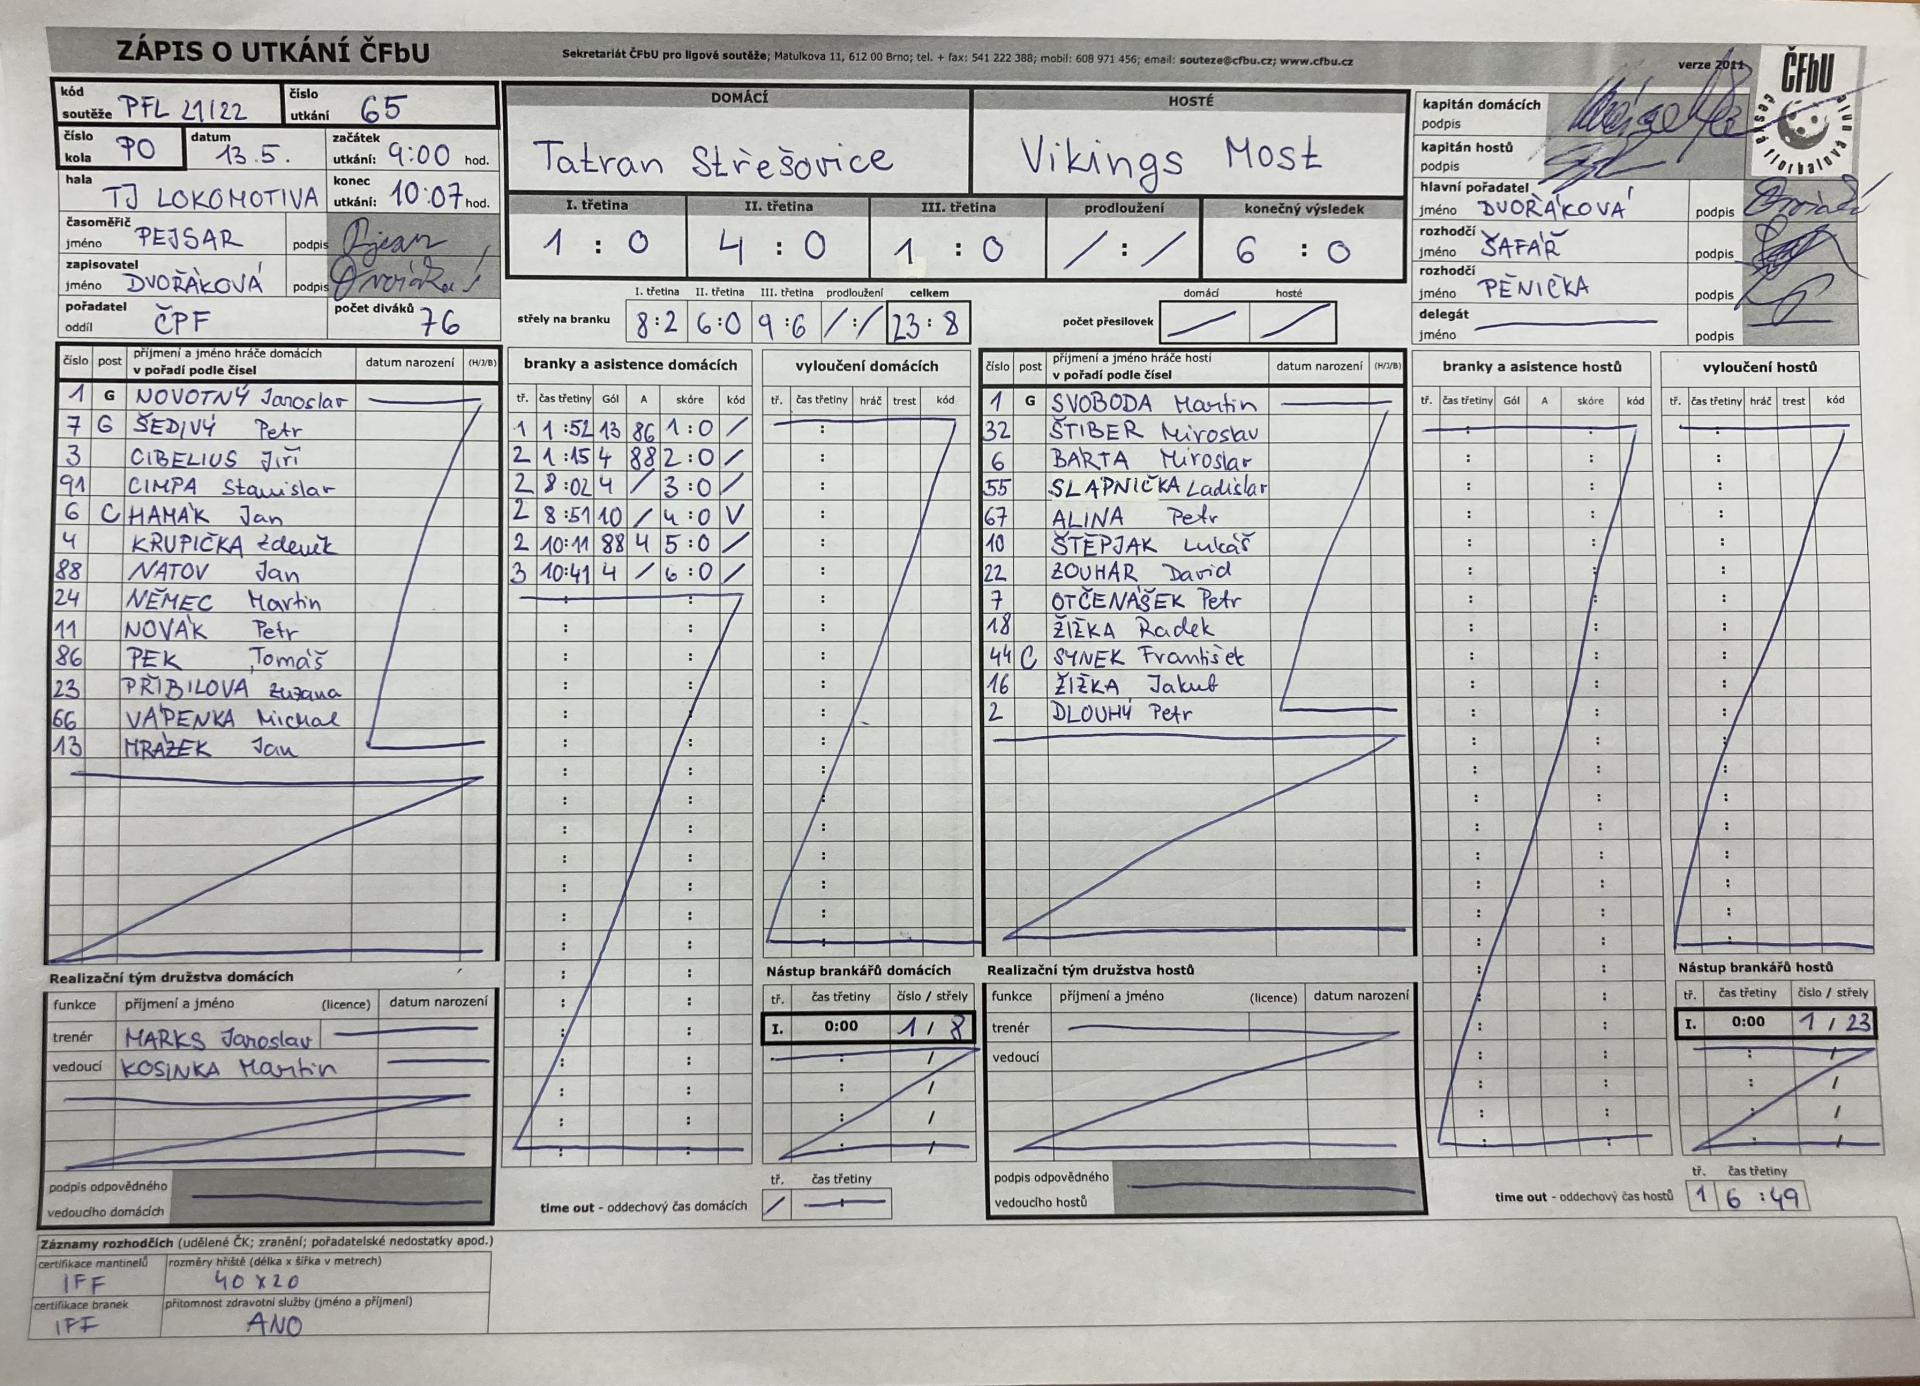 ZÁPIS O UTKÁNÍ ČFbU
Sekretariát ČFbU pro ligové soutěže; Matulkova 11, 612 00 Brno; tel. + fax: 541 222 388; mobil: 608 971 456; email: souteze@cfbu.cz; www.cfbu.cz
verze 2011
ČFbU
česká florbalová unie
kód soutěže PFL 21/22
číslo utkání 65
číslo kola PO
datum 13.5.
začátek utkání: 9:00 hod.
hala TJ LOKOMOTIVA
konec utkání: 10:07 hod.
časoměřič jméno PEJSAR podpis
zapisovatel jméno DVOŘÁKOVÁ podpis Dvořáková
pořadatel oddíl ČPF
počet diváků 76
DOMÁCÍ
Tatran Střešovice
HOSTÉ
Vikings Most
I. třetina II. třetina III. třetina prodloužení konečný výsledek
1 : 0 4 : 0 1 : 0 / : / 6 : 0
I. třetina II. třetina III. třetina prodloužení celkem
střely na branku 8:2 6:0 9:6 /:/ 23:8
domácí hosté
počet přesilovek
kapitán domácích podpis
kapitán hostů podpis
hlavní pořadatel jméno DVOŘÁKOVÁ podpis
rozhodčí jméno ŠAFÁŘ podpis
rozhodčí jméno PĚNIČKA podpis
delegát jméno podpis
číslo post příjmení a jméno hráče domácích v pořadí podle čísel datum narození (H/J/B)
1 G NOVOTNÝ Jaroslav
7 G ŠEDIVÝ Petr
3 CIBELIUS Jiří
91 CIMPA Stanislav
6 C HAMÁK Jan
4 KRUPIČKA Zdeněk
88 NATOV Jan
24 NĚMEC Martin
11 NOVÁK Petr
86 PEK Tomáš
23 PŘIBILOVÁ Zuzana
66 VÁPENKA Michal
13 MRÁZEK Jan
branky a asistence domácích
tř. čas třetiny Gól A skóre kód
1 1:52 13 86 1:0 /
2 1:15 4 88 2:0 /
2 8:02 4 / 3:0 /
2 8:51 10 / 4:0 V
2 10:11 88 4 5:0 /
3 10:41 4 / 6:0 /
vyloučení domácích
tř. čas třetiny hráč trest kód
číslo post příjmení a jméno hráče hostí v pořadí podle čísel datum narození (H/J/B)
1 G SVOBODA Martin
32 ŠTIBER Miroslav
6 BARTA Miroslav
55 SLAPNIČKA Ladislav
67 ALINA Petr
10 ŠTĚPJAK Lukáš
22 ZOUHAR David
7 OTČENÁŠEK Petr
18 ŽIŽKA Radek
44 C SYNEK František
16 ŽIŽKA Jakub
2 DLOUHÝ Petr
branky a asistence hostů
tř. čas třetiny Gól A skóre kód
vyloučení hostů
tř. čas třetiny hráč trest kód
Realizační tým družstva domácích
funkce příjmení a jméno (licence) datum narození
trenér MARKS Jaroslav
vedoucí KOSINKA Martin
podpis odpovědného vedoucího domácích
Nástup brankářů domácích
tř. čas třetiny číslo / střely
I. 0:00 1 / 8
tř. čas třetiny
time out - oddechový čas domácích
Realizační tým družstva hostů
funkce příjmení a jméno (licence) datum narození
trenér
vedoucí
podpis odpovědného vedoucího hostů
Nástup brankářů hostů
tř. čas třetiny číslo / střely
I. 0:00 1 / 23
tř. čas třetiny
time out - oddechový čas hostů 1 6:49
Záznamy rozhodčích (udělené ČK; zranění; pořadatelské nedostatky apod.)
certifikace mantinelů IFF
rozměry hřiště (délka x šířka v metrech) 40 x 20
certifikace branek IFF
přítomnost zdravotní služby (jméno a příjmení) ANO